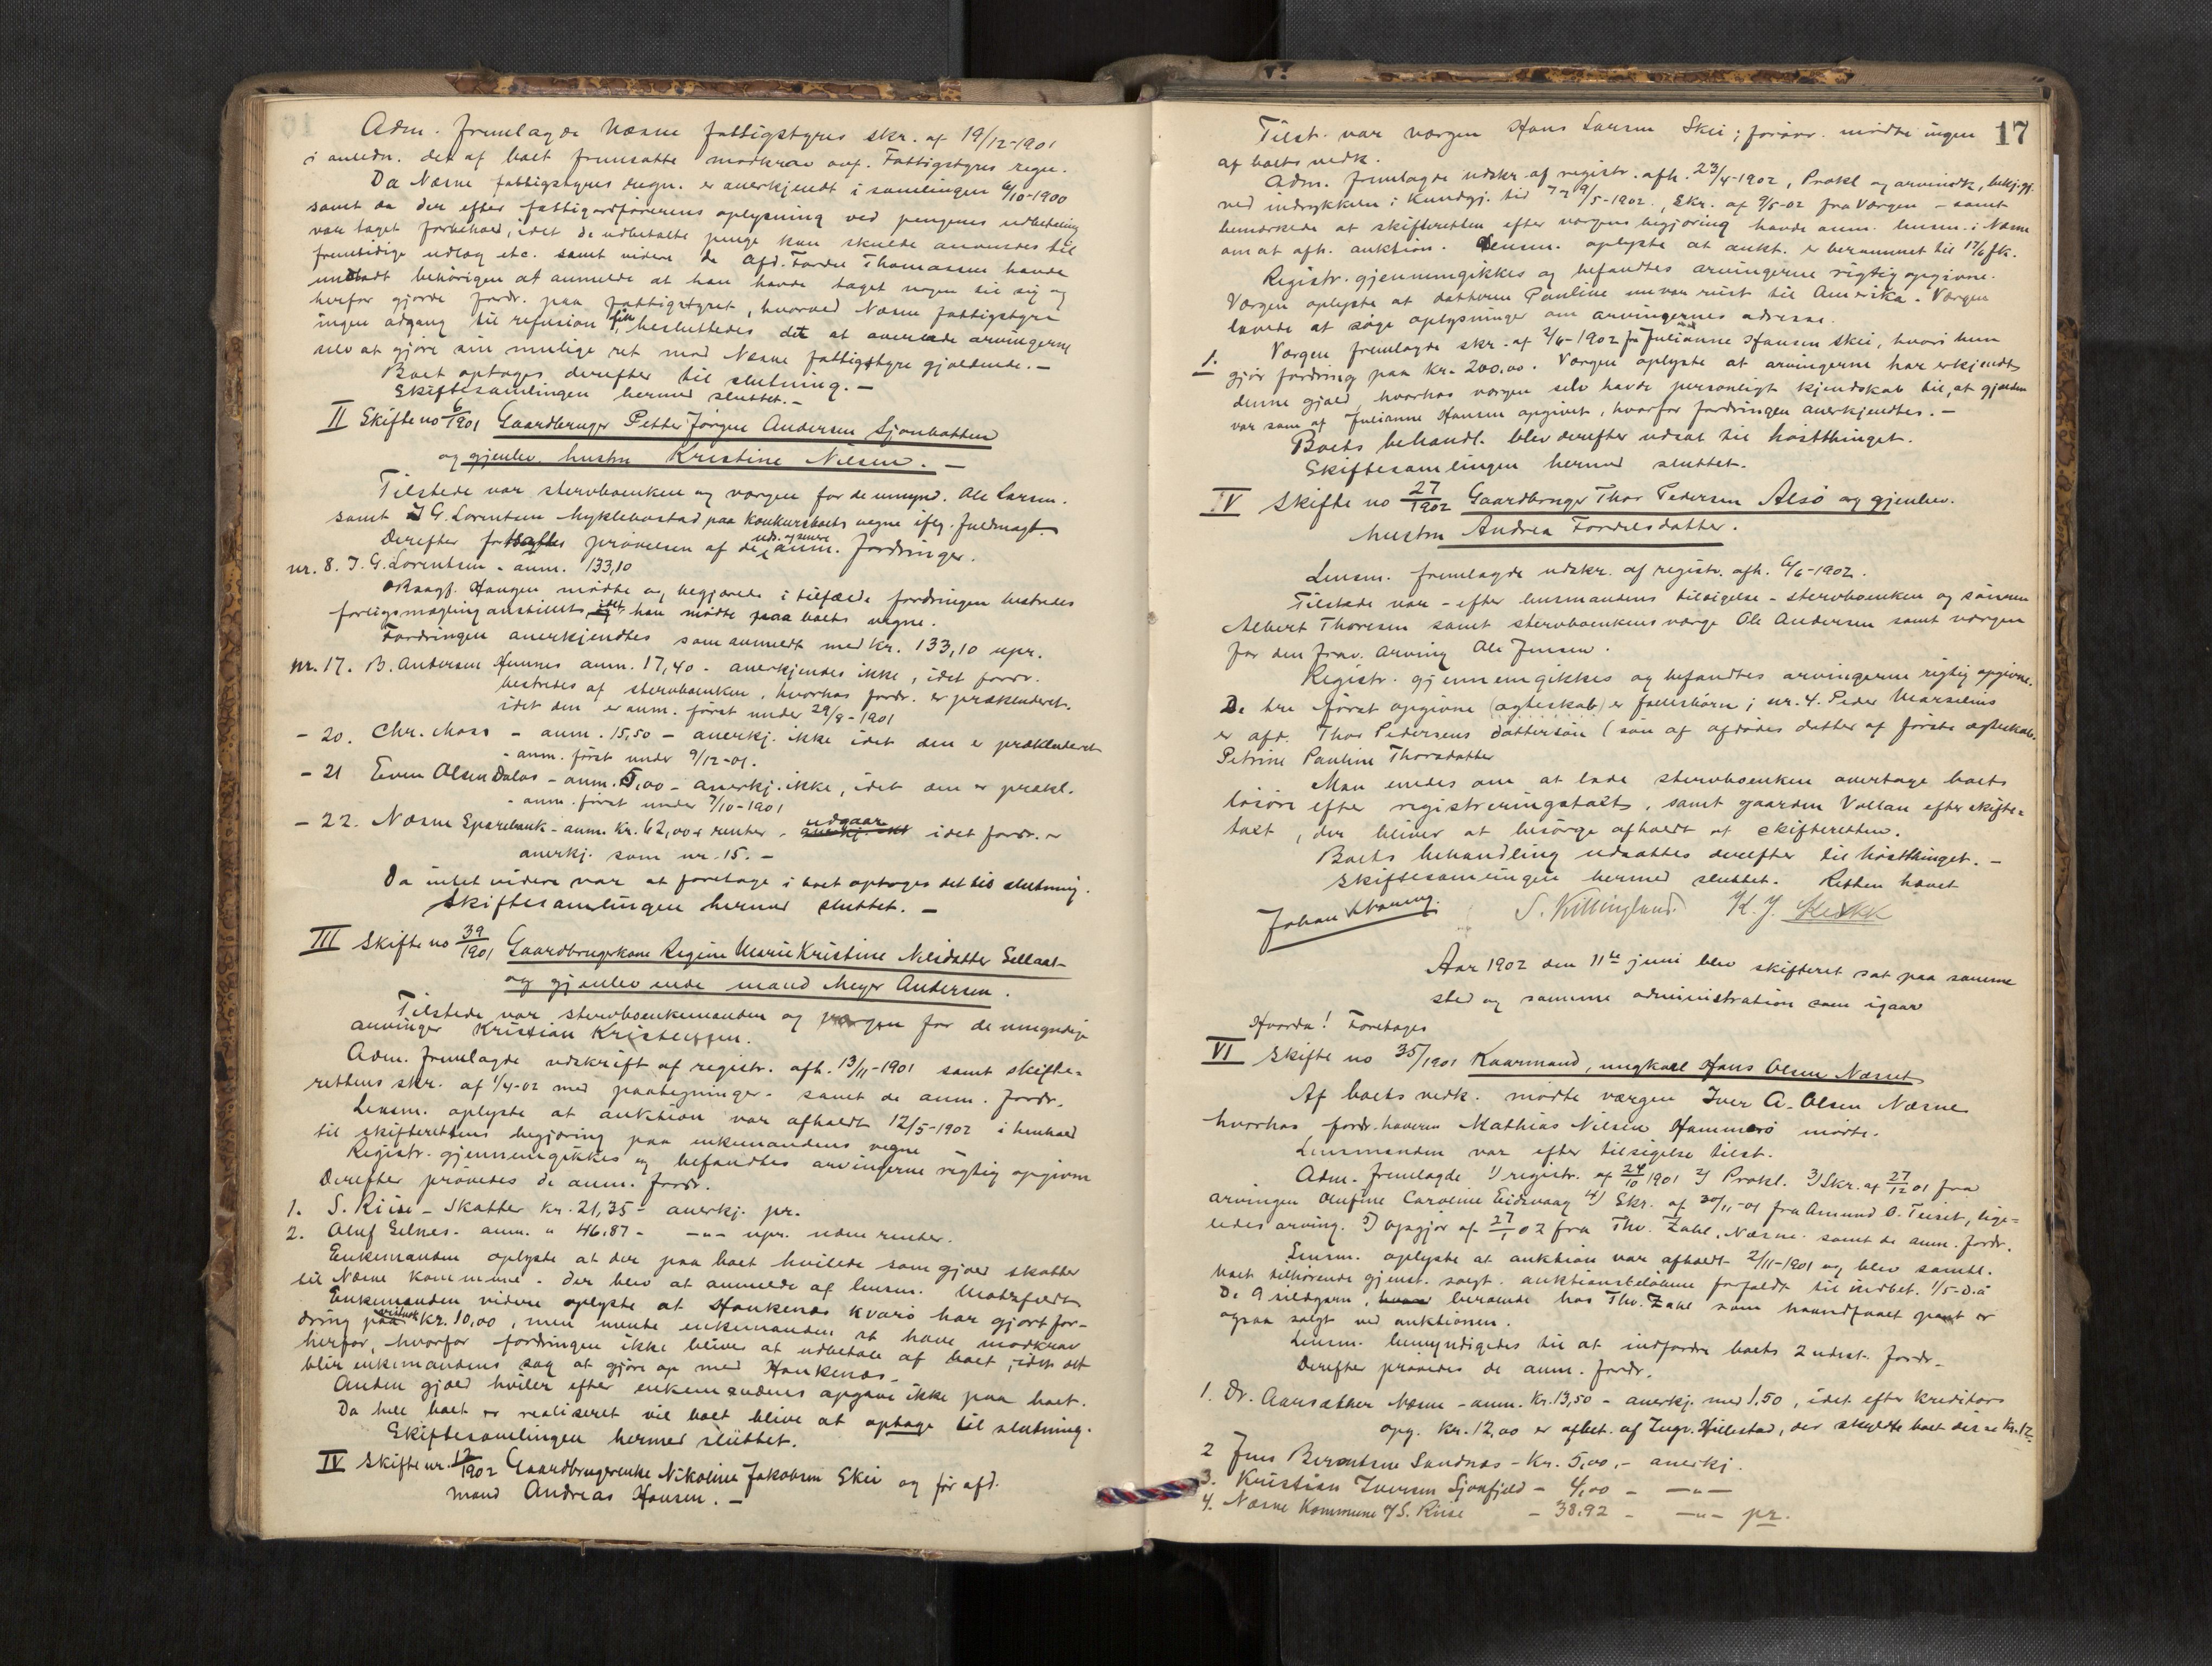 Adm. fremlagde Næsne fattigstyres skr. af 19/12-1901
i anledn. det af boet fremsatte modkrav ang. Fattigstyres regn.
Da Næsne fattigstyres regn. er anerkjendt i samlingen 6/10-1900
samt da der efter fattigordførerens oplysning ved pengenes udbetaling
var taget forbehold, idet de udbetalte penge kun skulde anvendes til
fremtidige udlæg etc. samt videre da afd. Fordel Thomassen havde
undladt behørigen at anmelde at han havde taget nogen til sig og
herfor gjorde fordr. paa fattigstyret, hvorved Næsne fattigstyre
ingen adgang til refusion fik, besluttedes det at overlade arvingerne
selv at gjøre sin mulige ret mod Næsne fattigstyre gjældende. —
Boet optoges derefter til slutning. —
Skiftesamlingen hermed sluttet. —
II Skifte no 6/1901 Gaardbruger Petter Jørgen Andersen Sjonbotten
og gjenlev. hustru Kristine Nilsen. —
Tilstede var stervboenken og værgen for de umynd. Ole Larsen.
samt J G. Lorentsen Myklebostad paa konkursboets vegne ifølg. fuldmagt.
Derefter fortsattes prøvelsen af de uds. og senere anm. fordringer.
nr. 8. J. G. Lorentsen - anm. 133,10
Sagf. Haugen mødte og begjærede i tilfælde fordringen bestredes
forligsmægling anstillet, idet han mødte paa boets vegne.
Fordringen anerkjendtes som anmeldt med kr. 133,10 upr.
nr. 17. B. Andersen Hemnes anm. 17,40 - anerkjendes ikke, idet fordr.
bestredes af stervboenken, hvorhos fordr. er prækluderet.
idet den er anm. først under 29/9-1901
- 20. Chr. Moss - anm. 15,50 - anerkj. ikke idet den er prækluderet
- anm. først under 9/12-01.
- 21 Even Olsen Dalos - anm. 5,00 - anerkj. ikke, idet den er prækl.
- anm. først under 7/10-1901
- 22. Næsne Sparebank - anm. kr. 62,00 + renter - udgaar idet fordr. er
anerkj. som nr. 15. —
Da intet videre var at foretage i boet optoges det til slutning.
Skiftesamlingen hermed sluttet. —
III Skifte no 39/1901 Gaardbrugerkone Regine Marie Kristine Nilsdatter Sellaat
og gjenlevende mand Meyer Andersen.
Tilstede var stervboenkemanden og værgen for de umyndige
arvinger Kristian Kristensen.
Adm. fremlagde udskrift af registr. afh. 13/11-1901 samt skifte=
rettens skr. af 1/4-02 med paategninger - samt de anm. fordr.
Lensm. oplyste at auktion var afholdt 12/5-1902 i henhold
til skifterettens begjæring paa enkemandens vegne
Registr. gjennemgikkes og befandtes arvingerne rigtig opgivne
Derefter prøvedes de anm. fordr.
1. S. Riise - Skatter kr. 21,35 - anerkj. pr.
2. Oluf Selnes - anm. " 46,87 - -"- upr. uden renter.
Enkemanden oplyste at der paa boet hvilede som gjæld skatter
til Næsne kommune - der blev at anmelde af lensm. Motzfeldt
Enkemanden videre oplyste at Haukenæs Kvarø har gjort for-
dring paa kr. 10,00, men mente enkemanden at have modkrav
herfor, hvorfor fordringen ikke bliver at udbetale af boet, idet det
blir enkemandens sag at gjøre op med Haukenæs.
Anden gjæld hviler efter enkemandens opgave ikke paa boet.
Da hele boet er realiseret vil boet blive at optage til slutning.
Skiftesamlingen hermed sluttet.
IV Skifte nr. 12/1902 Gaardbrugerenke Nikoline Jakobsen Skei og før afd.
mand Andreas Hansen. —
17
Tilst. var værgen Hans Larsen Skei; forøvr. mødte ingen
af boets vedk.
Adm. fremlagde udskr. af registr. afh. 23/4-1902, Prokl og arvindk, bekj.gj.
ved indrykkelse i Kundgj. tid 7 - 9/5-1902., Skr. af 9/5-02 fra Værgen - samt
bemærkede at skifteretten efter værgens begjæring havde anm. lensm. i Næsne
om at afh. auktion. Lensm. oplyste at aukt. er berammet til 17/6 fk.
Registr. gjennemgikkes og befandtes arvingerne rigtig opgivne.
Værgen oplyste at datteren Pauline nu var reist til Amerika. Værgen
lovede at søge oplysninger om arvingernes adresse.
1. Værgen fremlagde skr. af 2/6-1902 fra Julianne Hansen Skei, hvori hun
gjør fordring paa kr. 200,00. Værgen oplyste at arvingerne har erkjendt
denne gjæld, hvorhos værgen selv havde personligt kjendskab til, at gjælden
var som af Julianne Hansen opgivet, hvorfor fordringen anerkjendtes. —
Boets behandl. blev derefter udsat til høstthinget.
Skiftesamlingen hermed sluttet.
IV Skifte no 27/1902 Gaardbruger Thor Pedersen Alsø og gjenlev.
hustru Andrea Fordelsdatter.
Lensm. fremlagde udskr. af registr. afh. 6/6-1902.
Tilstede var - efter lensmandens tilsigelse - stervboenken og sønnen
Albert Thoresen samt stervboenkens værge Ole Andersen samt værgen
for den frav. arving Ole Jensen.
Registr. gjennemgikkes og befandtes arvingerne rigtig opgivne.
De tre først opgivne (ægteskab) er fællesbørn; nr. 4. Peder Marselius
er afd. Thor Pedersens dattersøn (søn af afdødes datter af første ægteskab.
Petrine Pauline Thorsdatter
Man enedes om at lade stervboenken overtage boets
løsøre efter registreringstakst, samt gaarden Vollan efter skifte=
takst, der bliver at besørge afholdt af skifteretten.
Boets behandling udsattes derefter til høstthinget. —
Skiftesamlingen hermed sluttet. Retten hævet
S. Killingland. K. J.
Aar 1902 den 11te juni blev skifteret sat paa samme
sted og samme administration som igaar
Hvorda! Foretoges
VI Skifte no 35/1901 Kaarmand, ungkarl Hans Olsen Næsnet
Af boets vedk. mødte værgen Iver A. Olsen Næsne
hvorhos fordr. haveren Mathias Nilsen Hammerø mødte.
Lensmanden var efter tilsigelse tilst.
Adm. fremlagde 1) registr. af 24/10 1901 2) Prokl. 3) Skr. af 27/12 01 fra
arvingen Olufine Caroline Eidsvaag 4) Skr. af 30/11-01 fra Amund O. Teiset, lige=
ledes arving. 5) opgjør af 27/1 02 fra Thv. Zahl, Næsne. samt de anm. fordr.
Lensm. oplyste at auktion var afholdt 2/11-1901 og blev samtl.
boet tilhørende gjenst. solgt. auktionsbeløbene forfaldt til indbet. 1/5-d.å
De 9 sildegarn, beroende hos Thv. Zahl som haandfaaet pant er
ogsaa solgt ved auktionen.
Lensm. bemyndigedes til at indfordre boets 2 udest. fordr.
Derefter prøvedes de anm. fordr.
1. Dr. Aarsæther Næsne - anm. kr. 13,50 - anerkj. med 1,50, idet efter kreditors
opg. kr. 12,00 er afbet. af Ingr. Hillestad, der skyldte boet disse kr. 12.
2 Jens Berentsen Sandnæs - kr. 5,00, - anerkj.
3. Kristian Iversen Sjonfjeld - 4,00 - -"-
4. Næsne Kommune v/S. Riise - 38.92 - -"- pr.